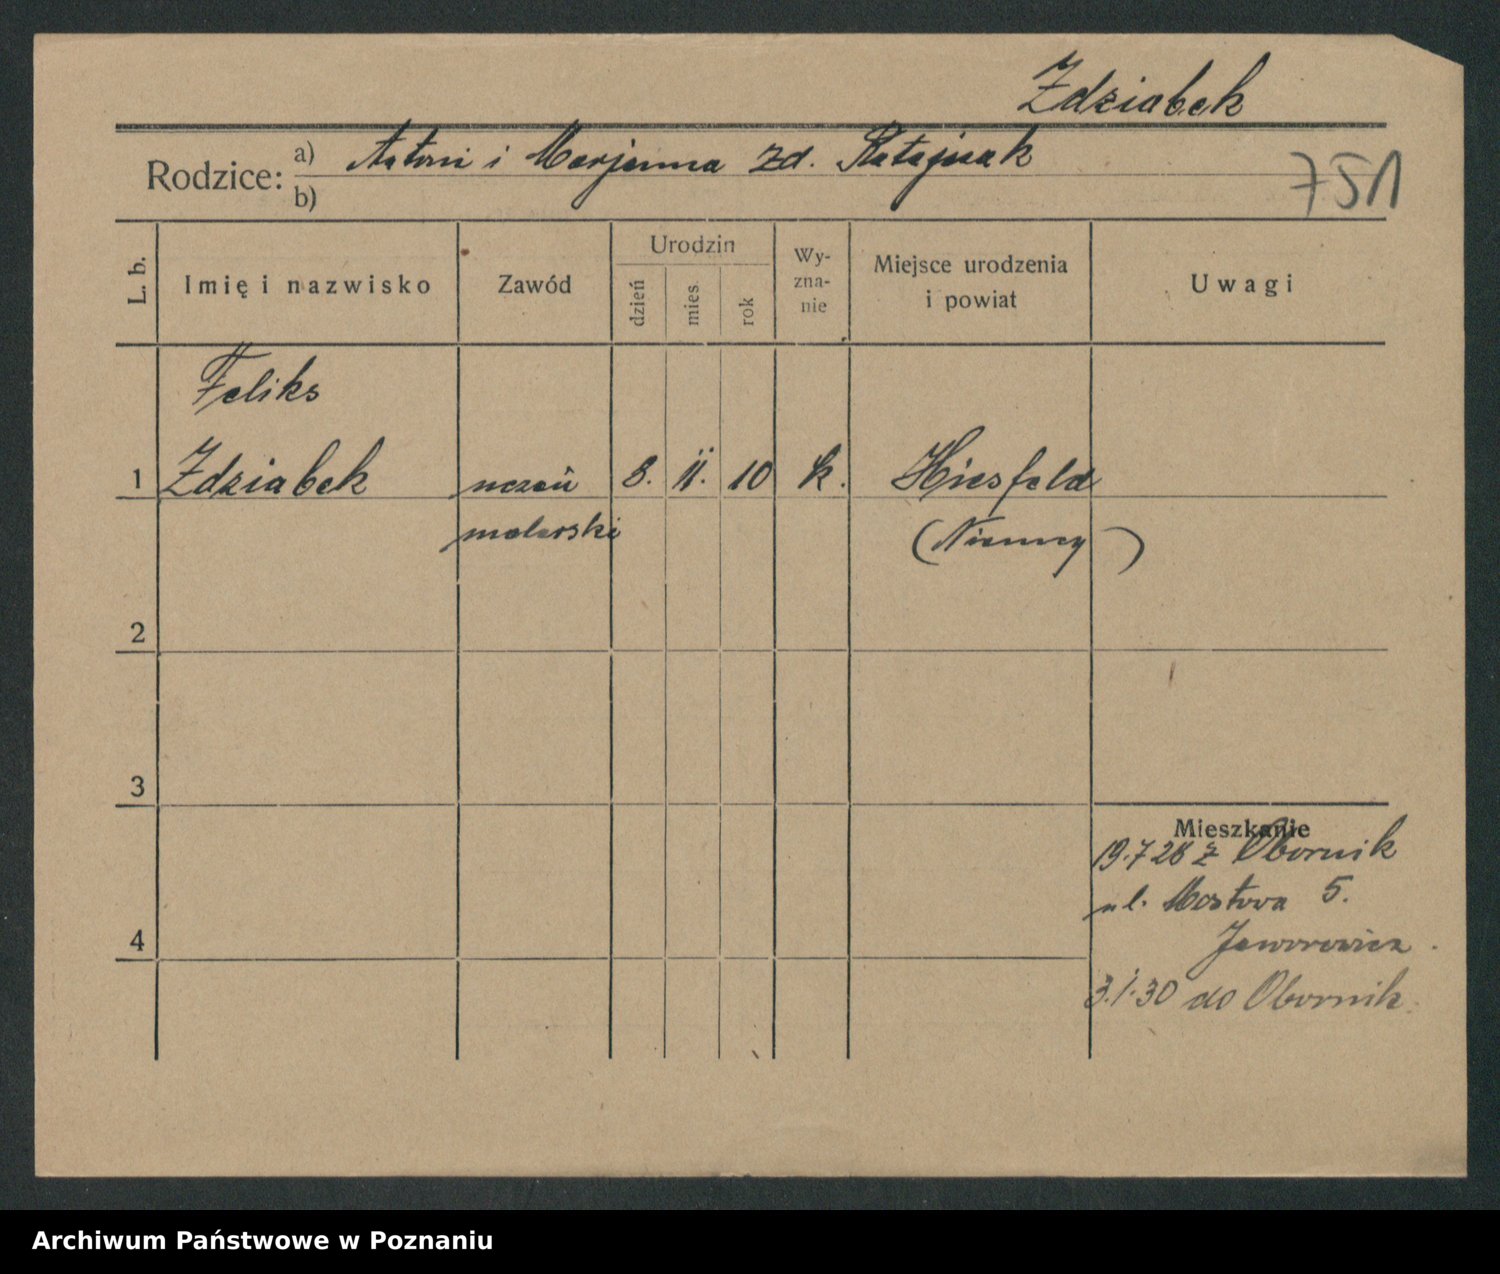 Zdziabek
Rodzice:
a) Antoni i Marjanna zd. Ratajczak
b)
751
L. b.
Imię i nazwisko
Zawód
Urodzin
dzień
mies.
rok
Wy-
zna-
nie
Miejsce urodzenia
i powiat
Uwagi
Feliks
1 Zdziabek uczeń 8. II. 10 k. Hiesfeld
malarski (Niemcy)
2
3
Mieszkanie
19.7 28 z Obornik
ul. Mostowa 5.
Jaworowicz.
4
3.1.30 do Obornik.
Archiwum Państwowe w Poznaniu